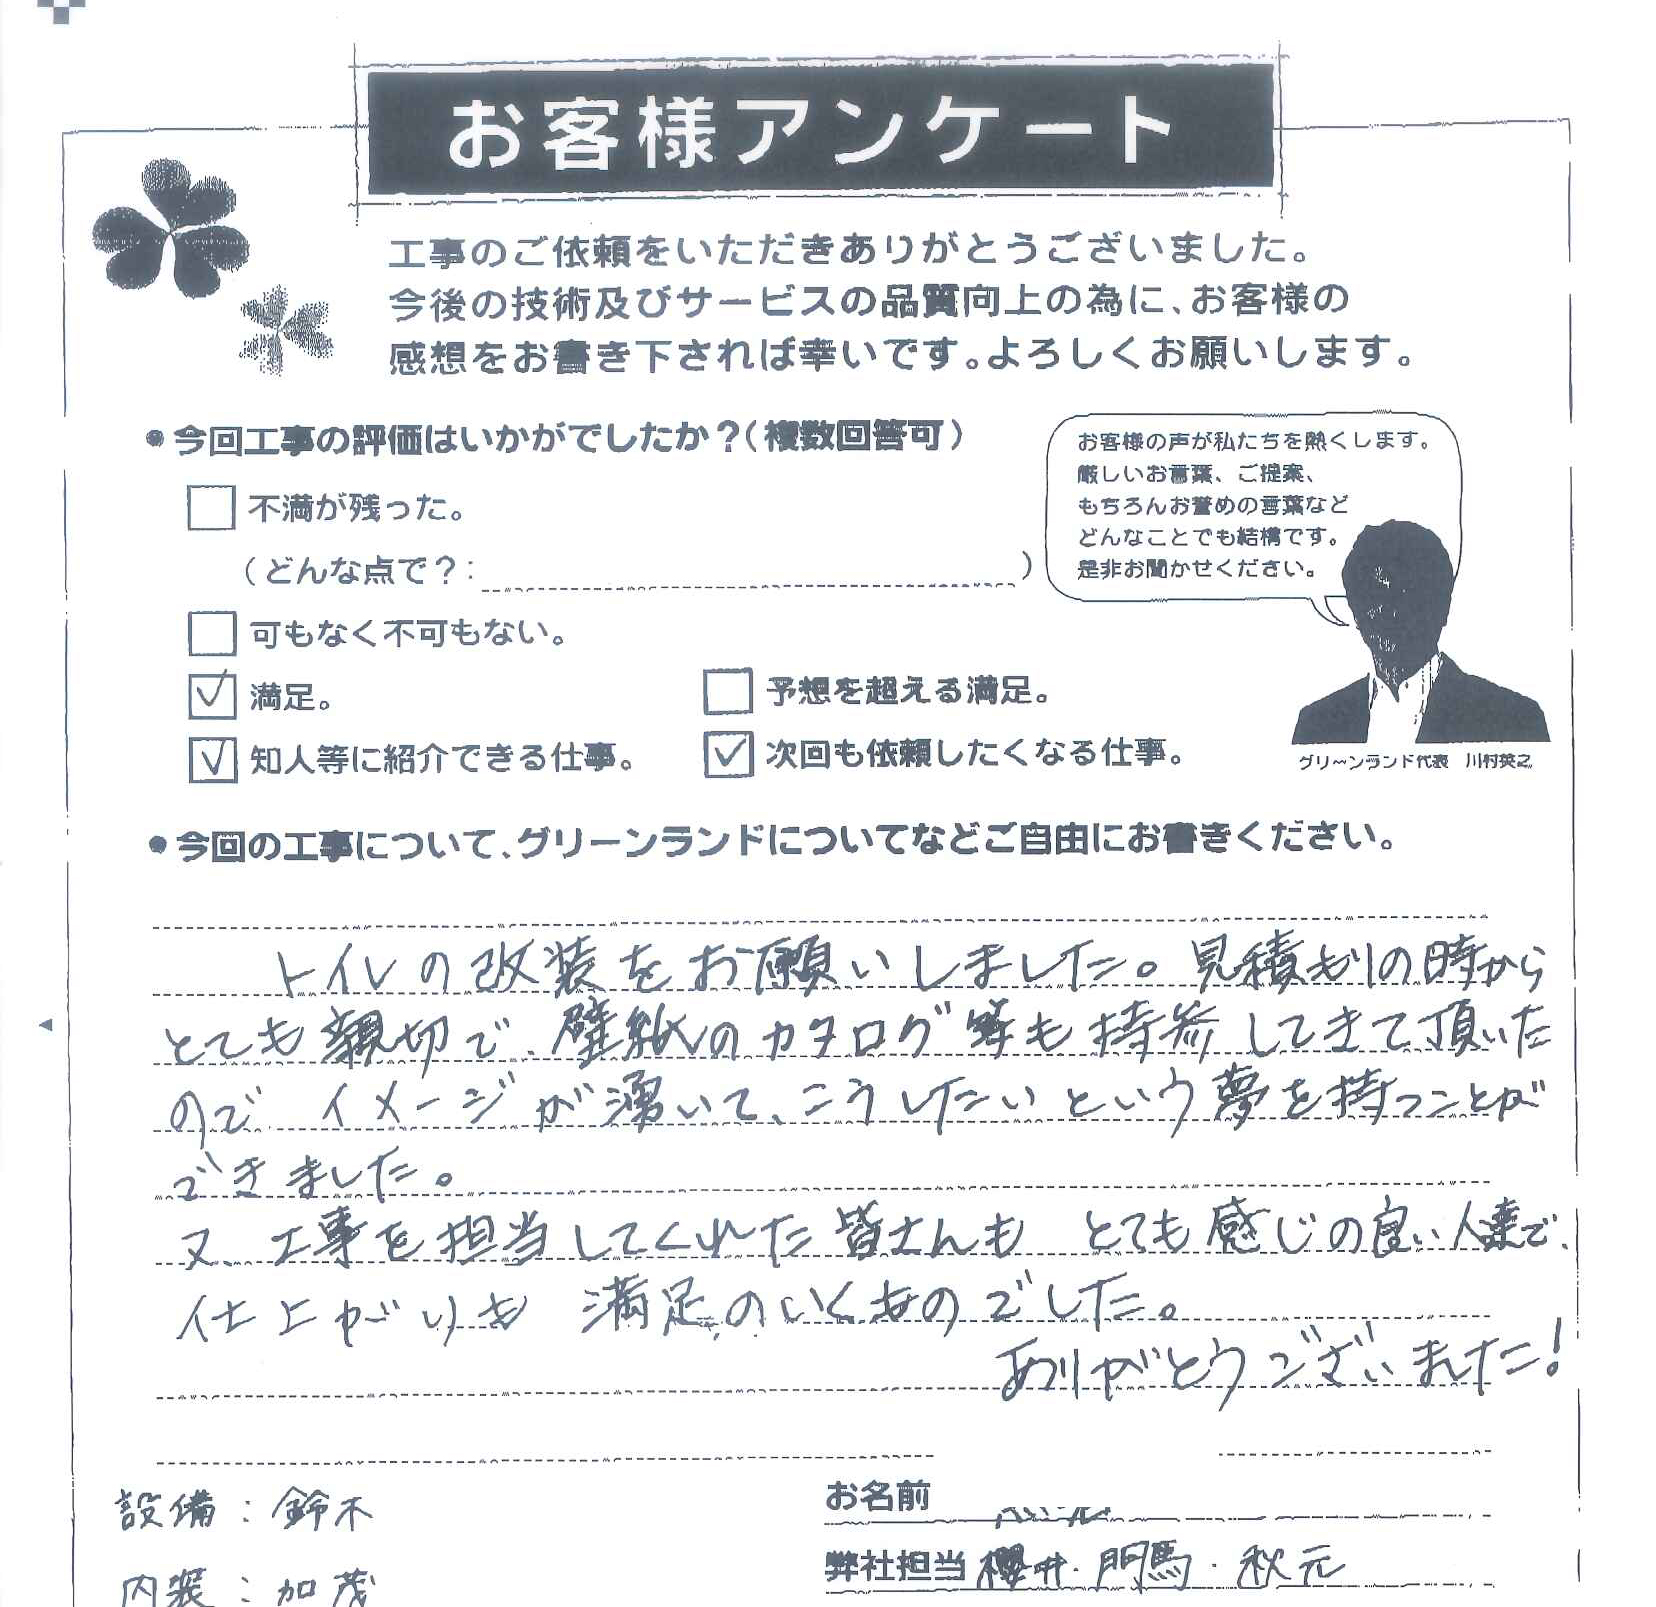 お客様アンケート
工事のご依頼をいただきありがとうございました。
今後の技術及びサービスの品質向上の為に、お客様の
感想をお書き下されば幸いです。よろしくお願いします。
●今回工事の評価はいかがでしたか？（複数回答可）
不満が残った。
（どんな点で？：　）
可もなく不可もない。
満足。
予想を超える満足。
知人等に紹介できる仕事。
次回も依頼したくなる仕事。
お客様の声が私たちを熱くします。
厳しいお言葉、ご提案、
もちろんお誉めの言葉など
どんなことでも結構です。
是非お聞かせください。
グリーンランド代表　川村英之
●今回の工事について、グリーンランドについてなどご自由にお書きください。
トイレの改装をお願いしました。見積もりの時から
とても親切で、壁紙のカタログ等も持参してきて頂いた
ので イメージが湧いて、こうしたいという夢を持つことが
できました。
又、工事を担当してくれた皆さんも とても感じの良い人達で、
仕上がりも 満足のいくものでした。
ありがとうございました！
設備：鈴木
内装：加茂
お名前
弊社担当 櫻井・門馬・秋元